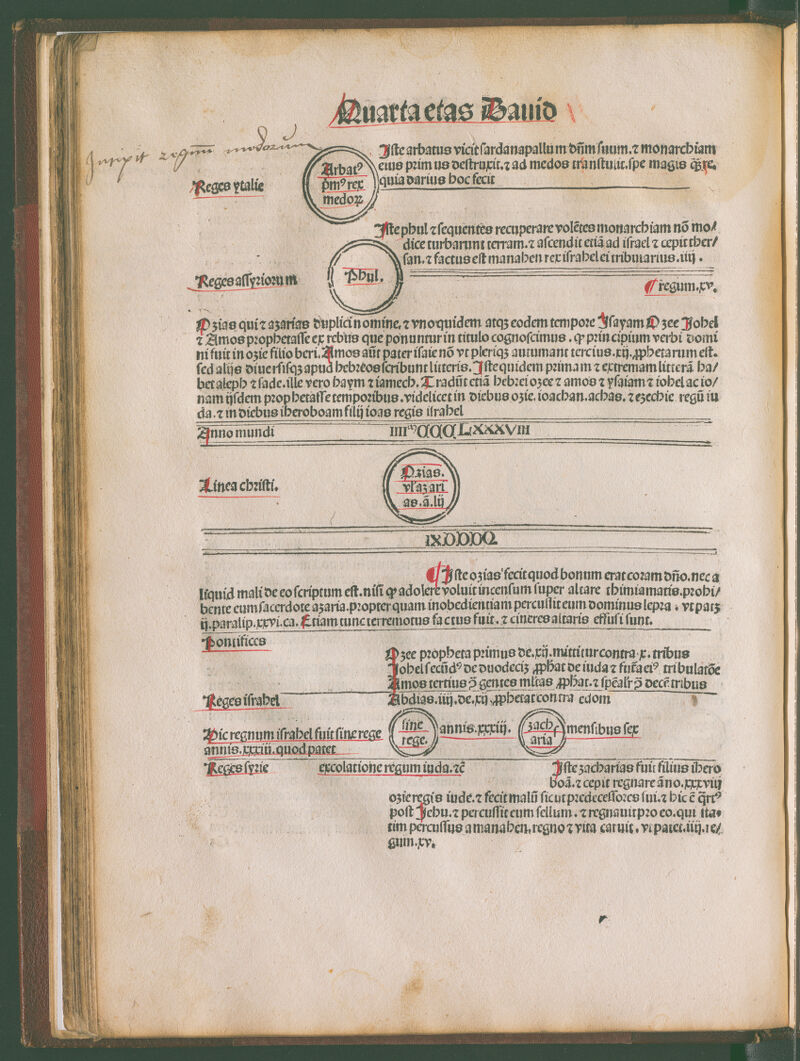 Quarta etas Dauid
Incipit regnum medorum
Iste arbatus vicit sardanapallum dn̄m suum.⁊ monarchiam
eius primus destruxit.⁊ ad medos transtulit.spe magis q̃ꝫ re.
quia darius hoc fecit
Arbatꝰ
pmꝰ rex
medoꝝ
Reges ytalie
Iste phul ⁊ sequentes recuperare volētes monarchiam nō mo/
dice turbarunt terram.⁊ ascendit etiā ad israel ⁊ cepit ther/
san.⁊ factus est manahen rex israhel ei tributarius.iiij.
regum.xv.
Phul.
Reges assyriorum
Ozias qui ⁊ azarias duplici nomine.⁊ vno quidem atqꝫ eodem tempore Isayam Ozee Johel
⁊ Amos prophetasse ex rebus que ponuntur in titulo cognoscimus. ꝙ principium verbi domi
ni fuit in ozie filio beri. Amos aūt pater isaie nō vt pleriqꝫ autumant tercius.xij.ꝓphetarum est.
sed alijs diuersisqꝫ apud hebreos scribunt litteris. Iste quidem primam ⁊ extremam litterā ha/
bet aleph ⁊ sade.ille vero haym ⁊ samech. Tradūt etiā hebrei ozee ⁊ amos ⁊ ysaiam ⁊ iohel ac io/
nam ijsdem prophetasse temporibus.videlicet in diebus ozie.ioathan.achas.⁊ ezechie regū iu
da.⁊ in diebus iheroboam filij ioas regis israhel
Anno mundi IIIIᵐCCCCLXXXVIII
Linea christi.
Ozias.
vl azari
as.ā.lij
IXDDDDQ
Iste ozias fecit quod bonum erat coram dn̄o.nec a
liquid mali de eo scriptum est.nisi ꝙ adolere voluit incensum super altare thimiamatis.prohi/
bente eum sacerdote azaria.propter quam inobedientiam percussit eum dominus lepra. vt patꝫ
ij.paralip.xxvi.ca. Etiam tunc terremotus factus fuit.⁊ cineres altaris effusi sunt.
Pontifices
Ozee propheta primus de.xij.mittitur contra.x.tribus
Johel secūdꝰ de duodeciꝫ ꝓphat de iuda ⁊ futa eiꝰ tribulatōe
Amos tertius ꝯ gentes mltas ꝓphat.⁊ spēalr ꝯ decē tribus
Reges israhel
Abdias.iiij.de.xij.ꝓphetat contra edom
Hic regnum israhel fuit sine rege
annis.xxxiij.quod patet
sine
rege.
annis.xxxiij.
zach
aria
mensibus sex
Reges syrie
ex colatione regum iuda.⁊c̄
Iste zacharias fuit filius ihero
boā.⁊ cepit regnare āno.xxxviij
ozie regis iude.⁊ fecit malū sicut predecessores sui.⁊ hic ē q̄rtꝰ
post Jehu.⁊ percussit eum sellum.⁊ regnauit pro eo.qui sta-
tim percussus a manahen.regno ⁊ vita caruit. vt patet.iiij.re/
gum.xv.